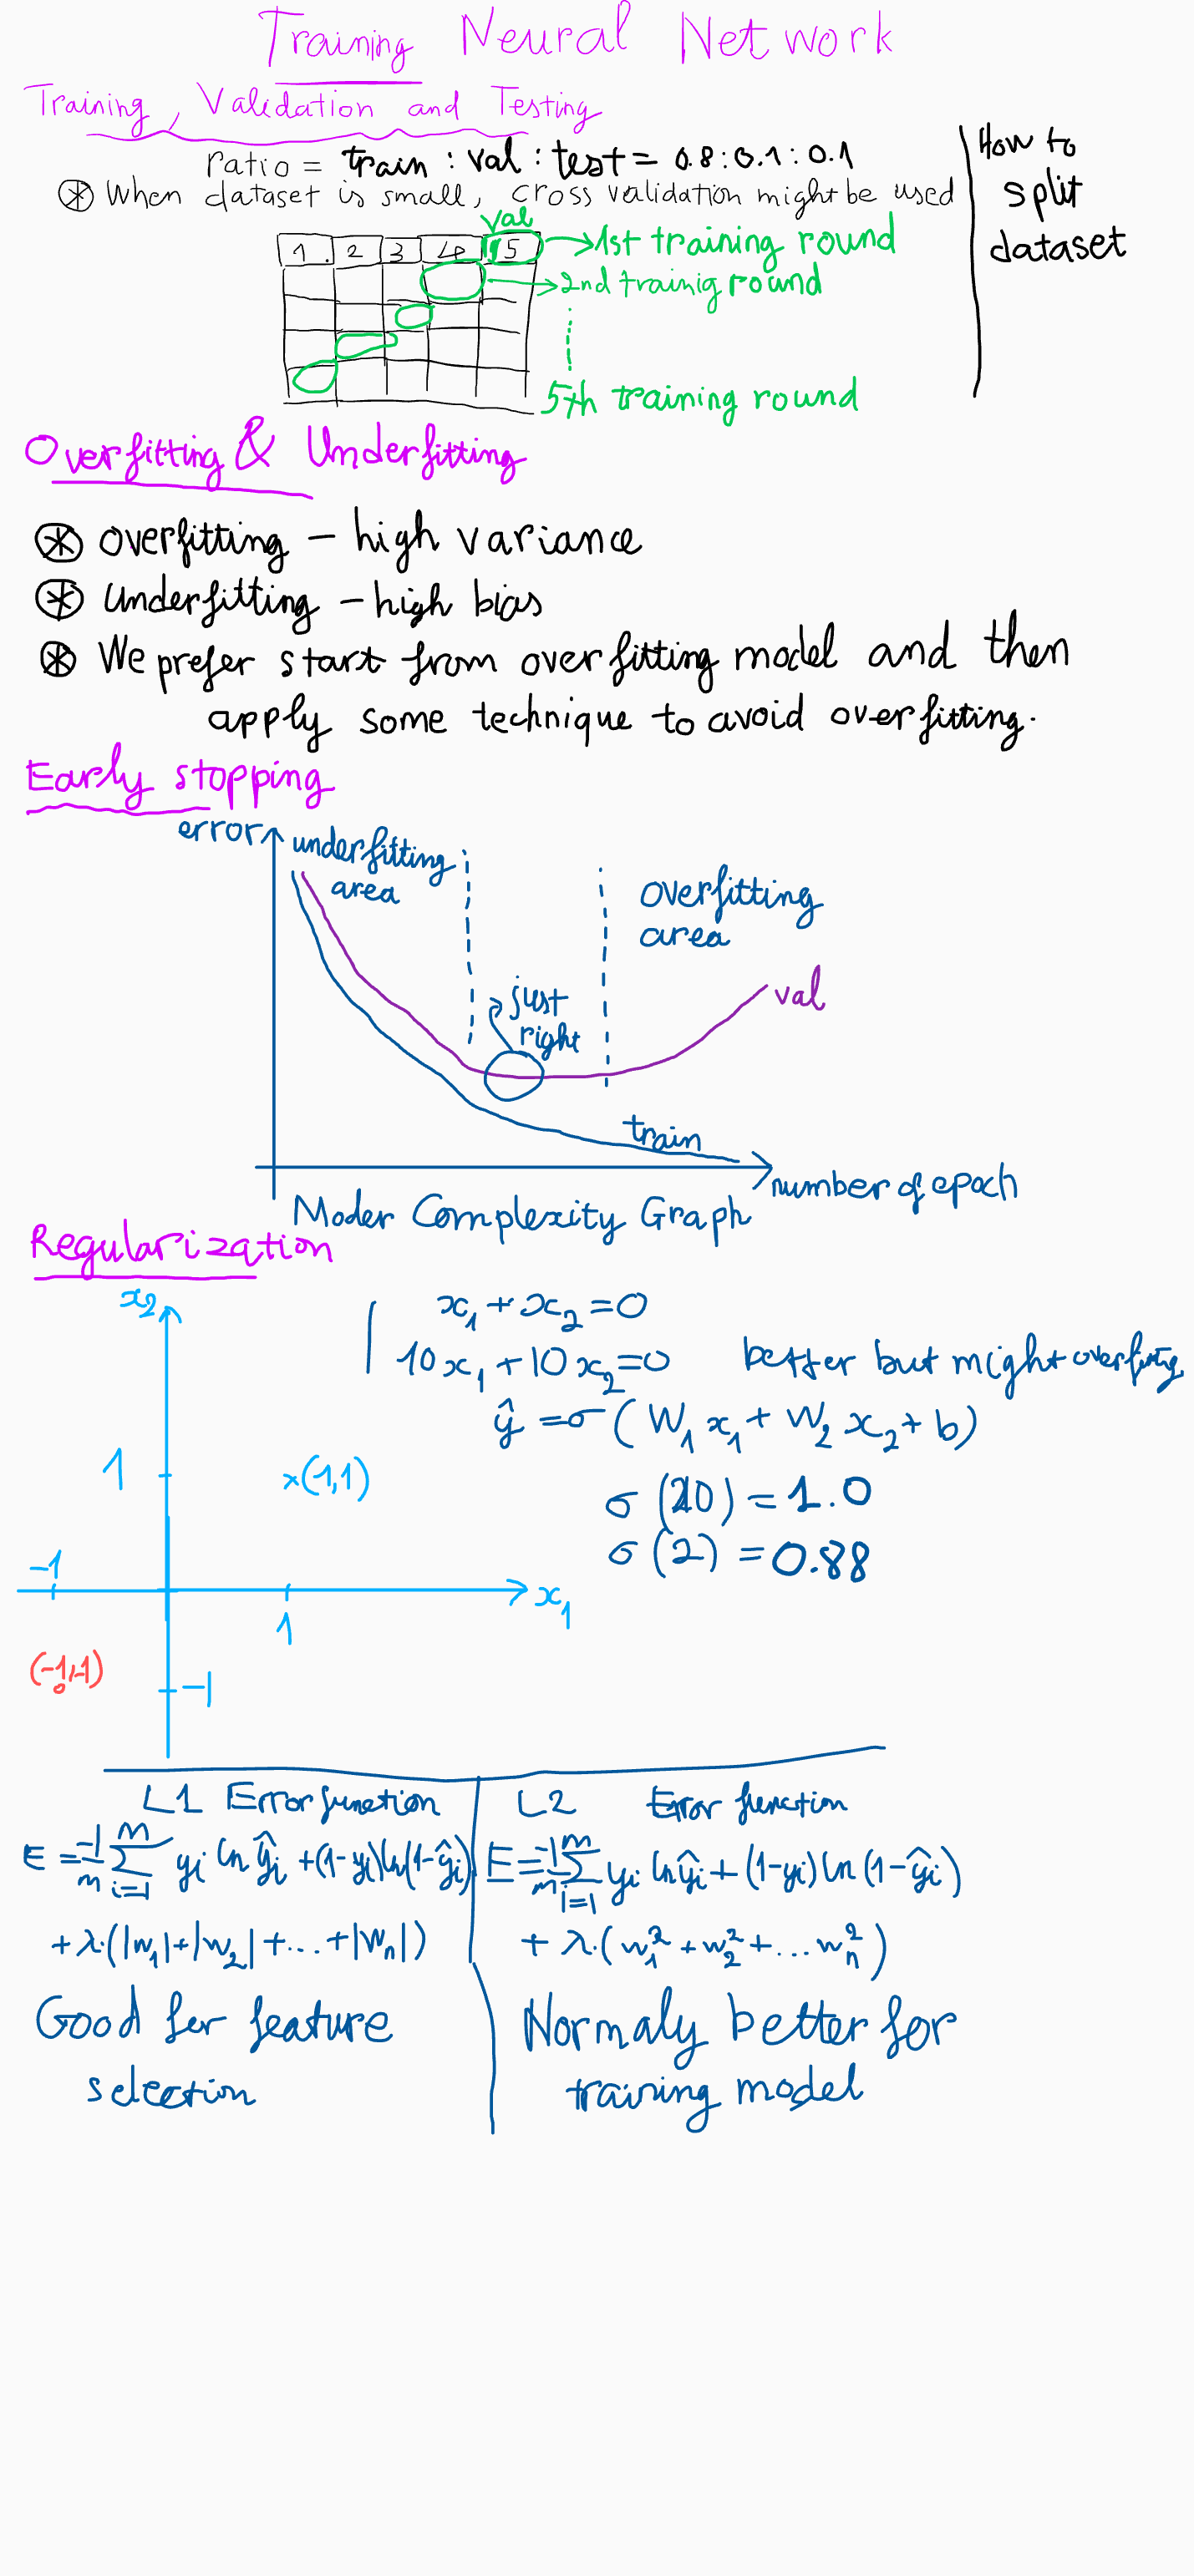 Training Neural Network
Training, Validation and Testing
ratio = train : val : test = 0.8 : 0.1 : 0.1
⊛ When dataset is small, cross validation might be used
How to
split
dataset
val
1. 2 3 4 5 → 1st training round
→ 2nd trainig round
5th training round
Overfitting & Underfitting
⊛ overfitting - high variance
⊛ Underfitting - high bias
⊛ We prefer start from overfitting model and then
apply some technique to avoid overfitting.
Early stopping
error
underfitting
area
overfitting
area
just
right
val
train
number of epoch
Moder Complexity Graph
Regularization
x₂
x₁ + x₂ = 0
10x₁ + 10x₂ = 0 better but might overfitting
ŷ = σ(W₁x₁ + W₂x₂ + b)
1
x(1,1)
σ(20) = 1.0
σ(2) = 0.88
-1
x₁
1
(-1,-1)
-1
L1 Error function
E = -1/m Σ_{i=1}^{m} yi ln ŷi + (1-yi) ln(1-ŷi)
+ λ·(|w₁| + |w₂| + ... + |wn|)
Good for feature
selection
L2 Error function
E = -1/m Σ_{i=1}^{m} yi ln ŷi + (1-yi) ln(1-ŷi)
+ λ·(w₁² + w₂² + ... wn²)
Normaly better for
training model